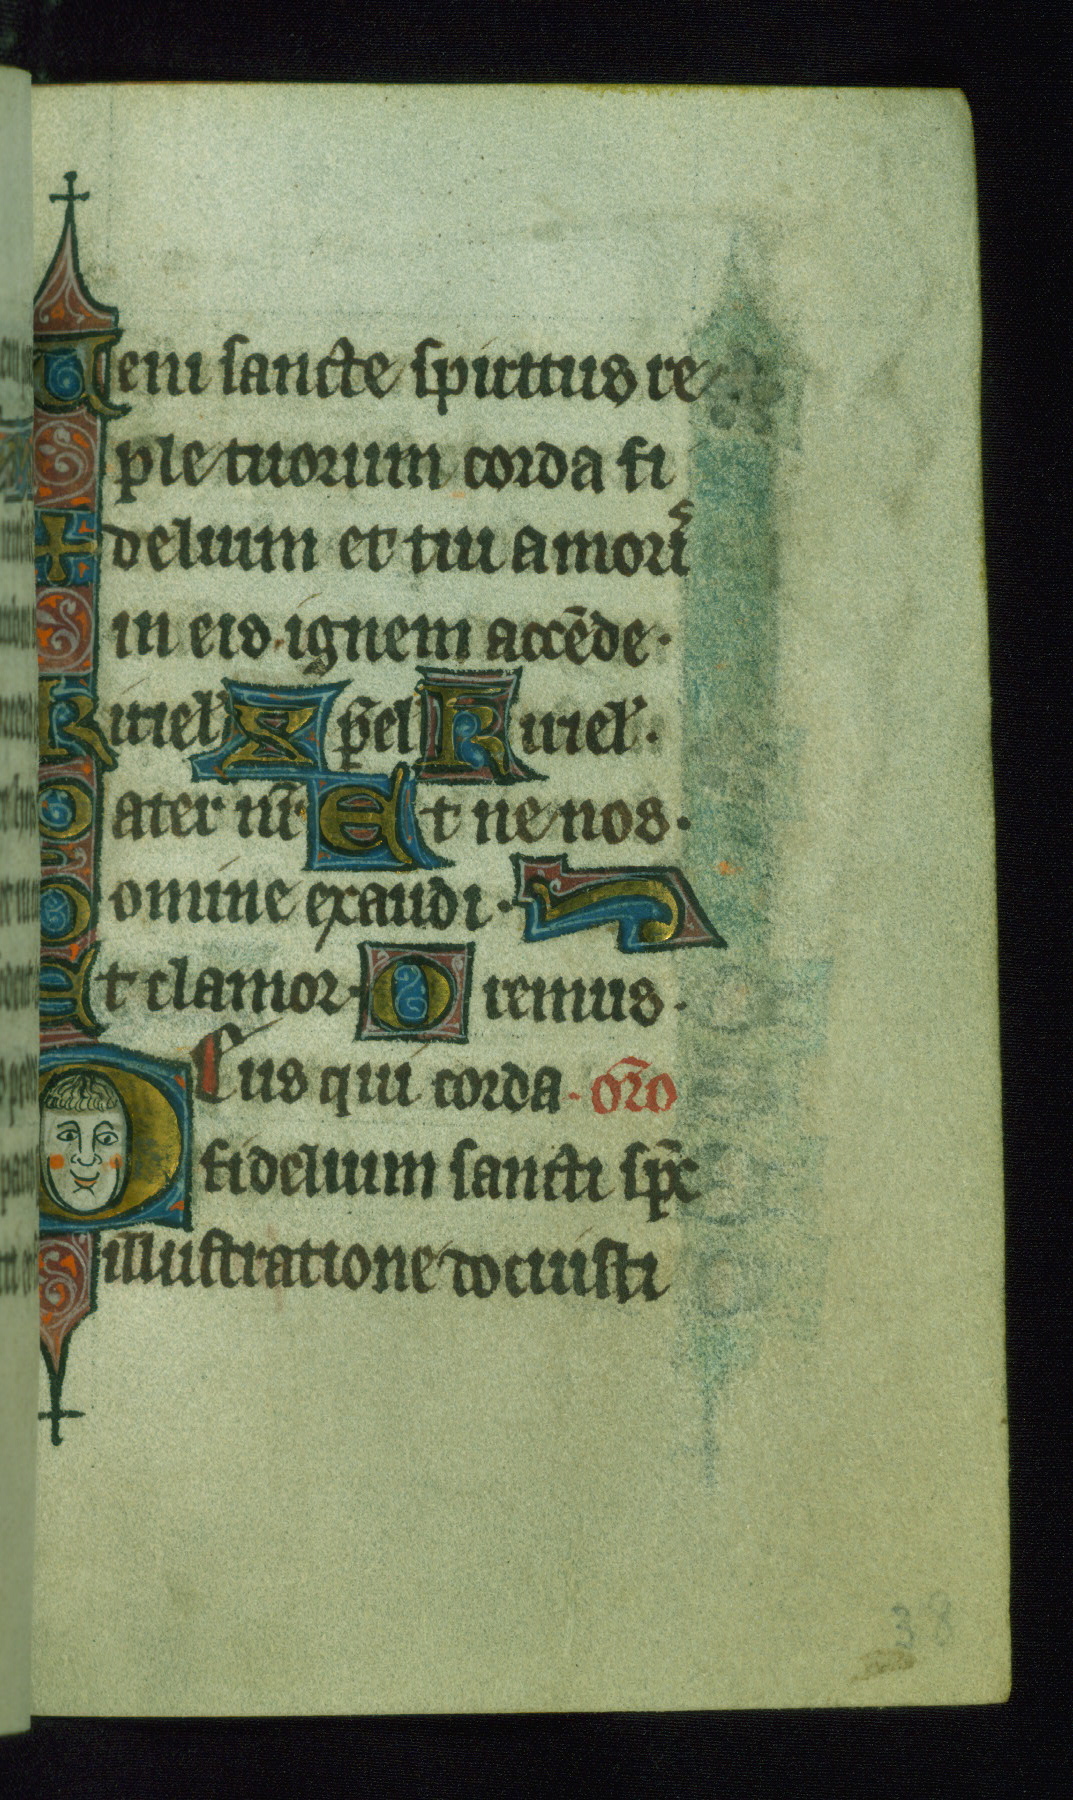 Ueni sancte spirittus re
ple tuorum corda fi
delium et tui amoris
in eis ignem accēde.
Kiriel' Xp̄el' Kiriel'.
Pater nr̄. Et ne nos.
Domine exaudi.
Et clamor. Oremus.
Deus qui corda. or̄o
fidelium sancti sp̄c
illustratione docuisti
38